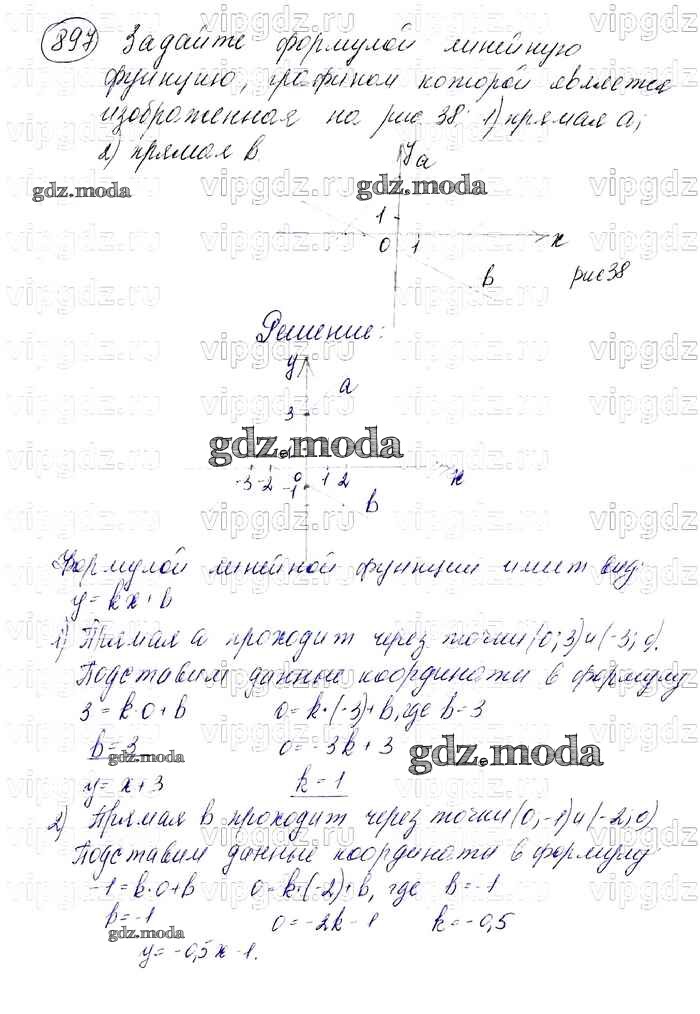 897 Задайте формулой линейную
функцию, графиком которой является
изображенная на рис 38: 1) прямая a;
2) прямая b.
y a
gdz.moda gdz.moda
1
0 1 x
b рис 38
Решение:
y
a
3
gdz.moda
-3 -2 0 1 2 x
-1
b
Формулой линейной функции имеет вид:
y = kx + b
1) Прямая a проходит через точки (0; 3) и (-3; 0).
Подставим данные координаты в формулу
3 = k·0 + b 0 = k·(-3) + b, где b = 3
b = 3 0 = -3k + 3 gdz.moda
y = x + 3 k = 1
2) Прямая b проходит через точки (0; -1) и (-2; 0)
Подставим данные координаты в формулу:
-1 = k·0 + b 0 = k·(-2) + b, где b = -1
b = -1 0 = -2k - 1 k = -0,5
gdz.moda
y = -0,5x - 1.